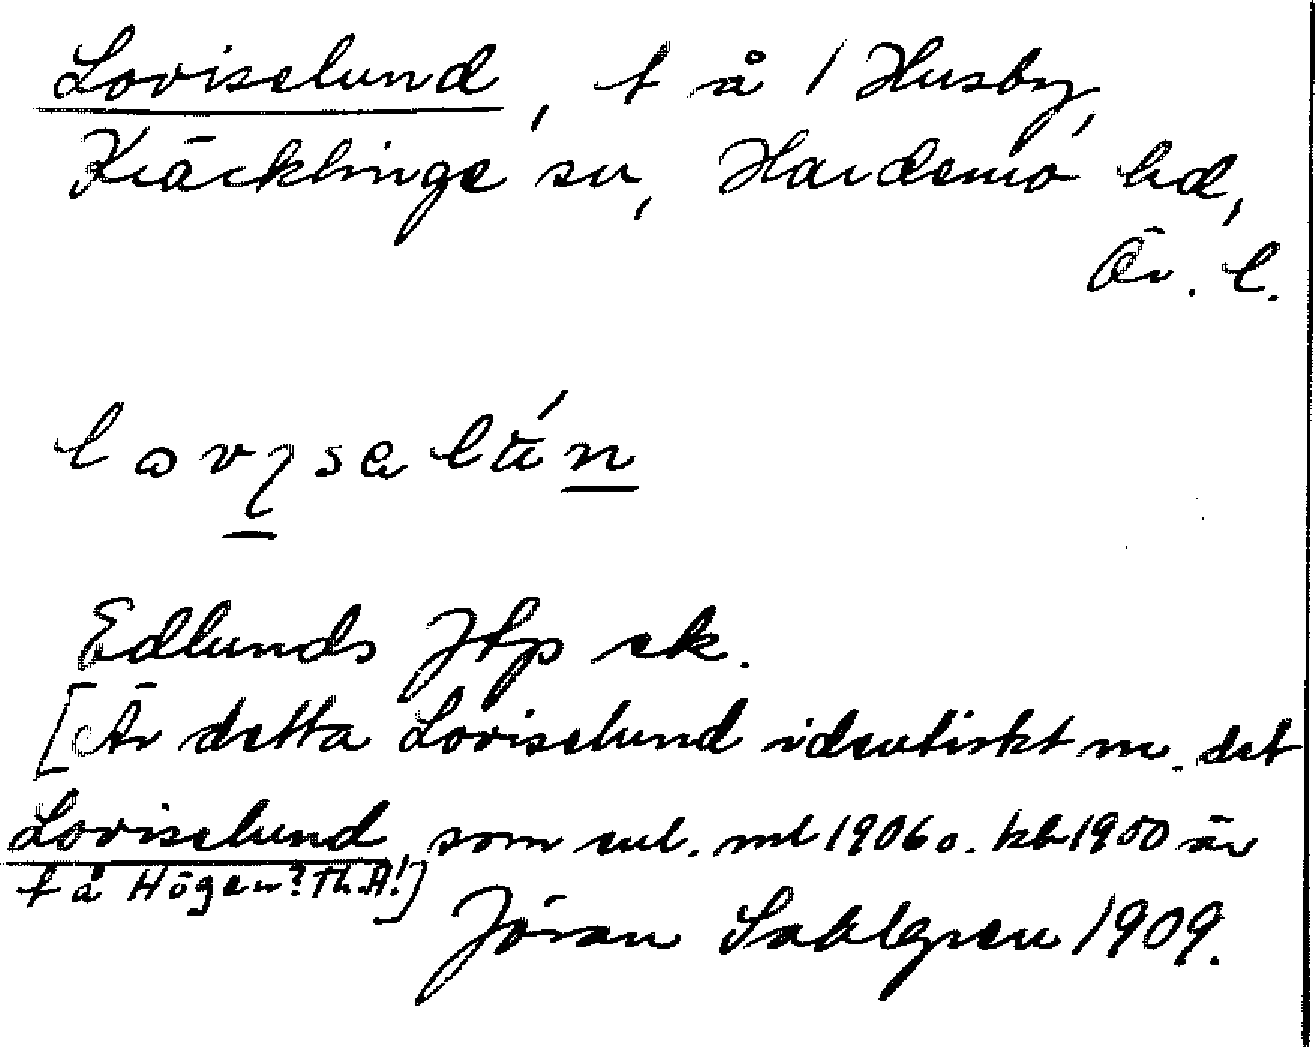 Loviselund, t å 1 Husby,
Kräcklinge sn, Hardemo hd,
Ör. l.
Edlunds Jfp ek.
[Är detta Loviselund identiskt m. det
Loviselund som enl. ml 1906 o. kb 1900 är
t å Högen? Th.A!]
Jöran Sahlgren 1909.